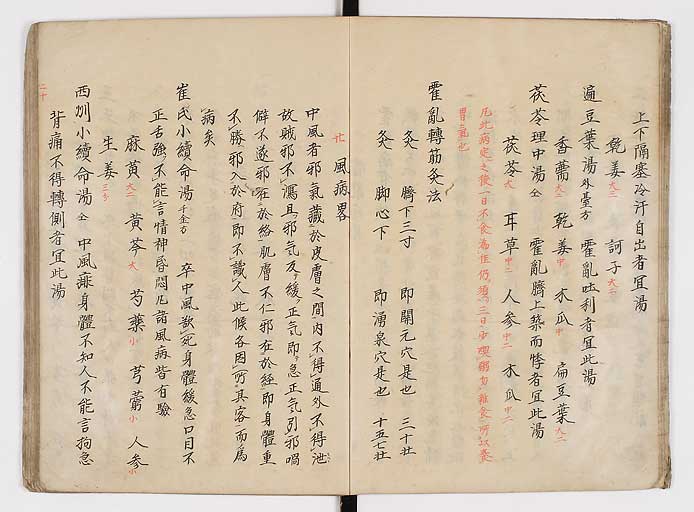 上下隔塞冷汗自出者宜湯
乾姜大二 訶子大六
遍豆葉湯外臺方 霍乱吐利者宜此湯
香薷大二 乾姜中一 木瓜中一 扁豆葉大二
茯苓理中湯仝 霍乱臍上築而悸者宜此湯
茯苓大 耳草中二 人参中二 木瓜中二
凡此病定之後一日不食為佳仍須三日少喫粥方雜食所以養
胃氣也
霍亂轉筋灸法
灸 臍下三寸 即開元穴是也 三十壮
灸 脚心下 即湧泉穴是也 十五七壮
廿 風病畧
中風者邪氣藏於皮膚之間内不得通外不得泄
故賊邪不瀉且邪氣及緩正氣即急正氣引邪喎
僻不遂邪在於絡肌膚不仁邪在於経即身體重
不勝邪入於府即不識人此候各因所其客而為
病矣
崔氏小續命湯千金方 卒中風欲死身體緩急口目不
正舌強不能言情神昏悶凡諸風病皆有驗
麻黄大二 黄芩大 芍薬小 芎藭小 人参小
生姜三分
西州小續命湯仝 中風痱身體不知人不能言拘急
背痛不得轉側者宜此湯
二十